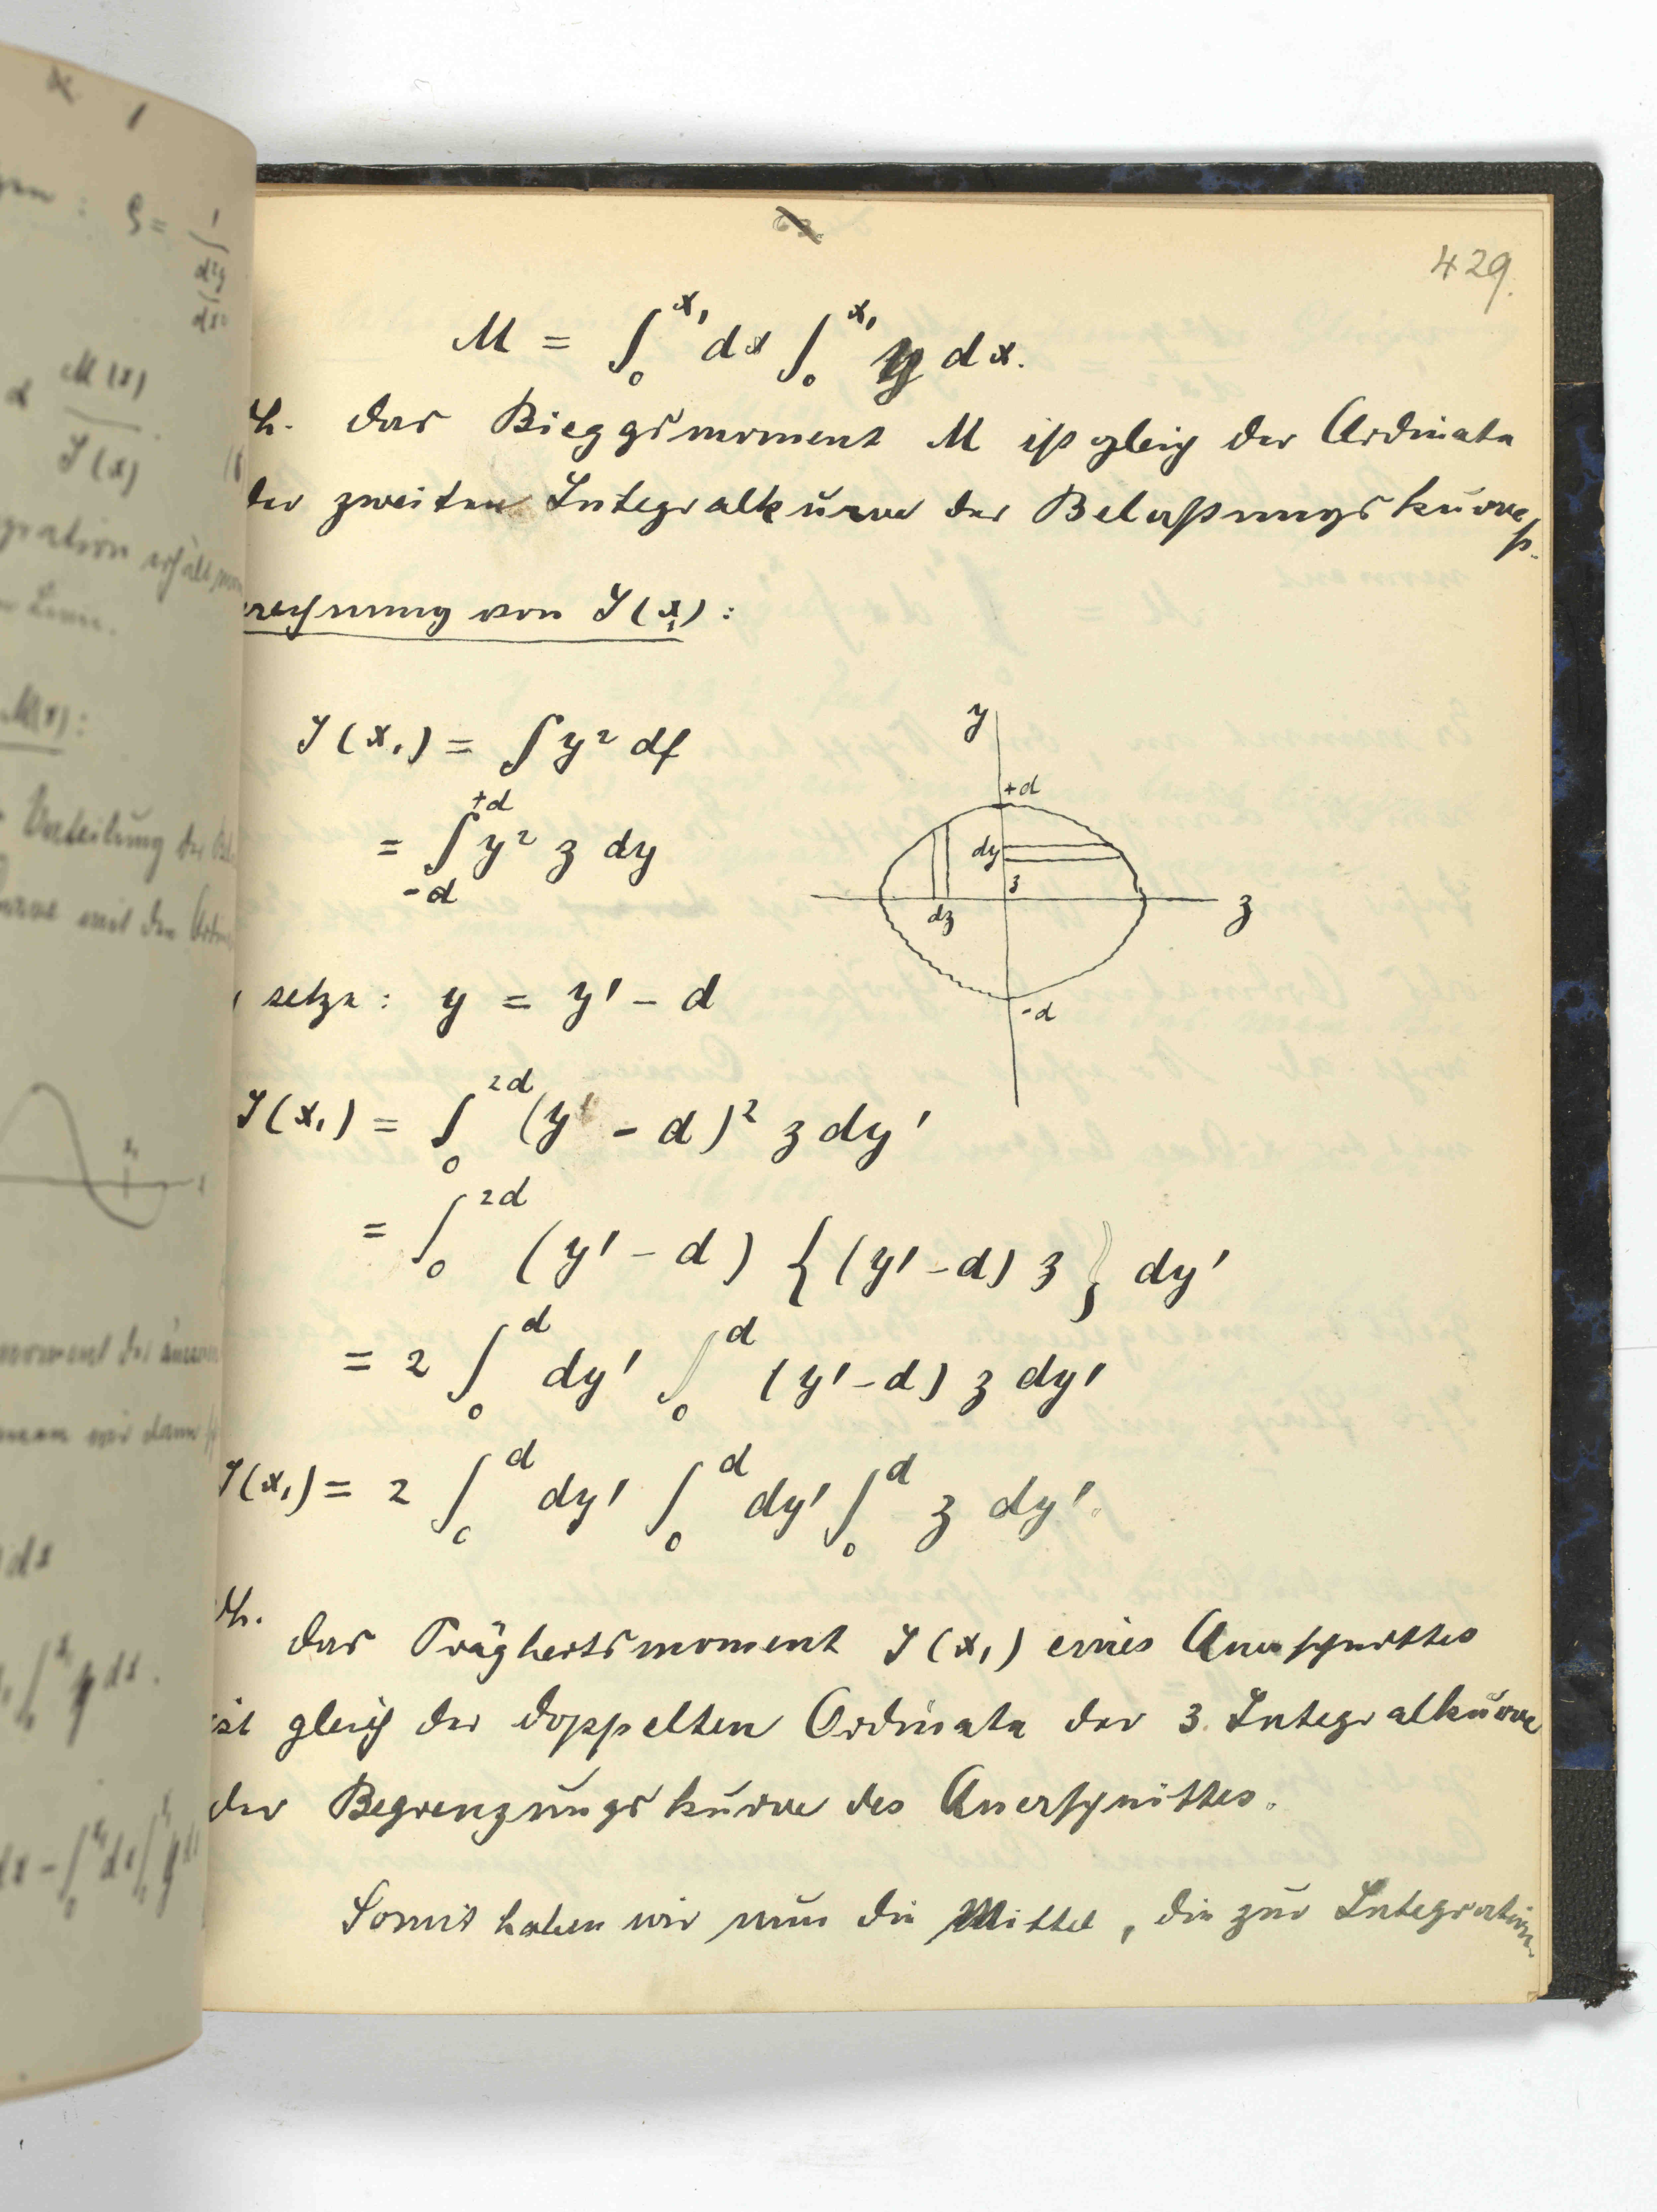 α 1
ρ = 1
d²y
dx²
α M(x)
J(x)
M(x):
Verteilung der
moment der äusseren
dx
429.
M = ∫₀^x₁ dx ∫₀^x₁ y dx.
h. das Bieggsmoment M ist gleich der Ordinate
der zweiten Integralkurve der Belastungskurve
rechnung von J(x₁):
J(x₁) = ∫ y² df
= ∫₋d^+d y² z dy
y
+d
dy
z
dz
z
-d
setze: y = y' - d
J(x₁) = ∫₀^2d (y' - d)² z dy'
= ∫₀^2d (y' - d) {(y' - d) z} dy'
= 2 ∫₀^d dy' ∫₀^d (y' - d) z dy'
J(x₁) = 2 ∫₀^d dy' ∫₀^d dy' ∫₀^d z dy'.
h.
das Trägheitsmoment J(x₁) eines Querschnittes
ist gleich der doppelten Ordinate der 3. Integralkurve
der Begrenzungskurve des Querschnittes.
Somit haben wir nun die Mittel, die zur Integration